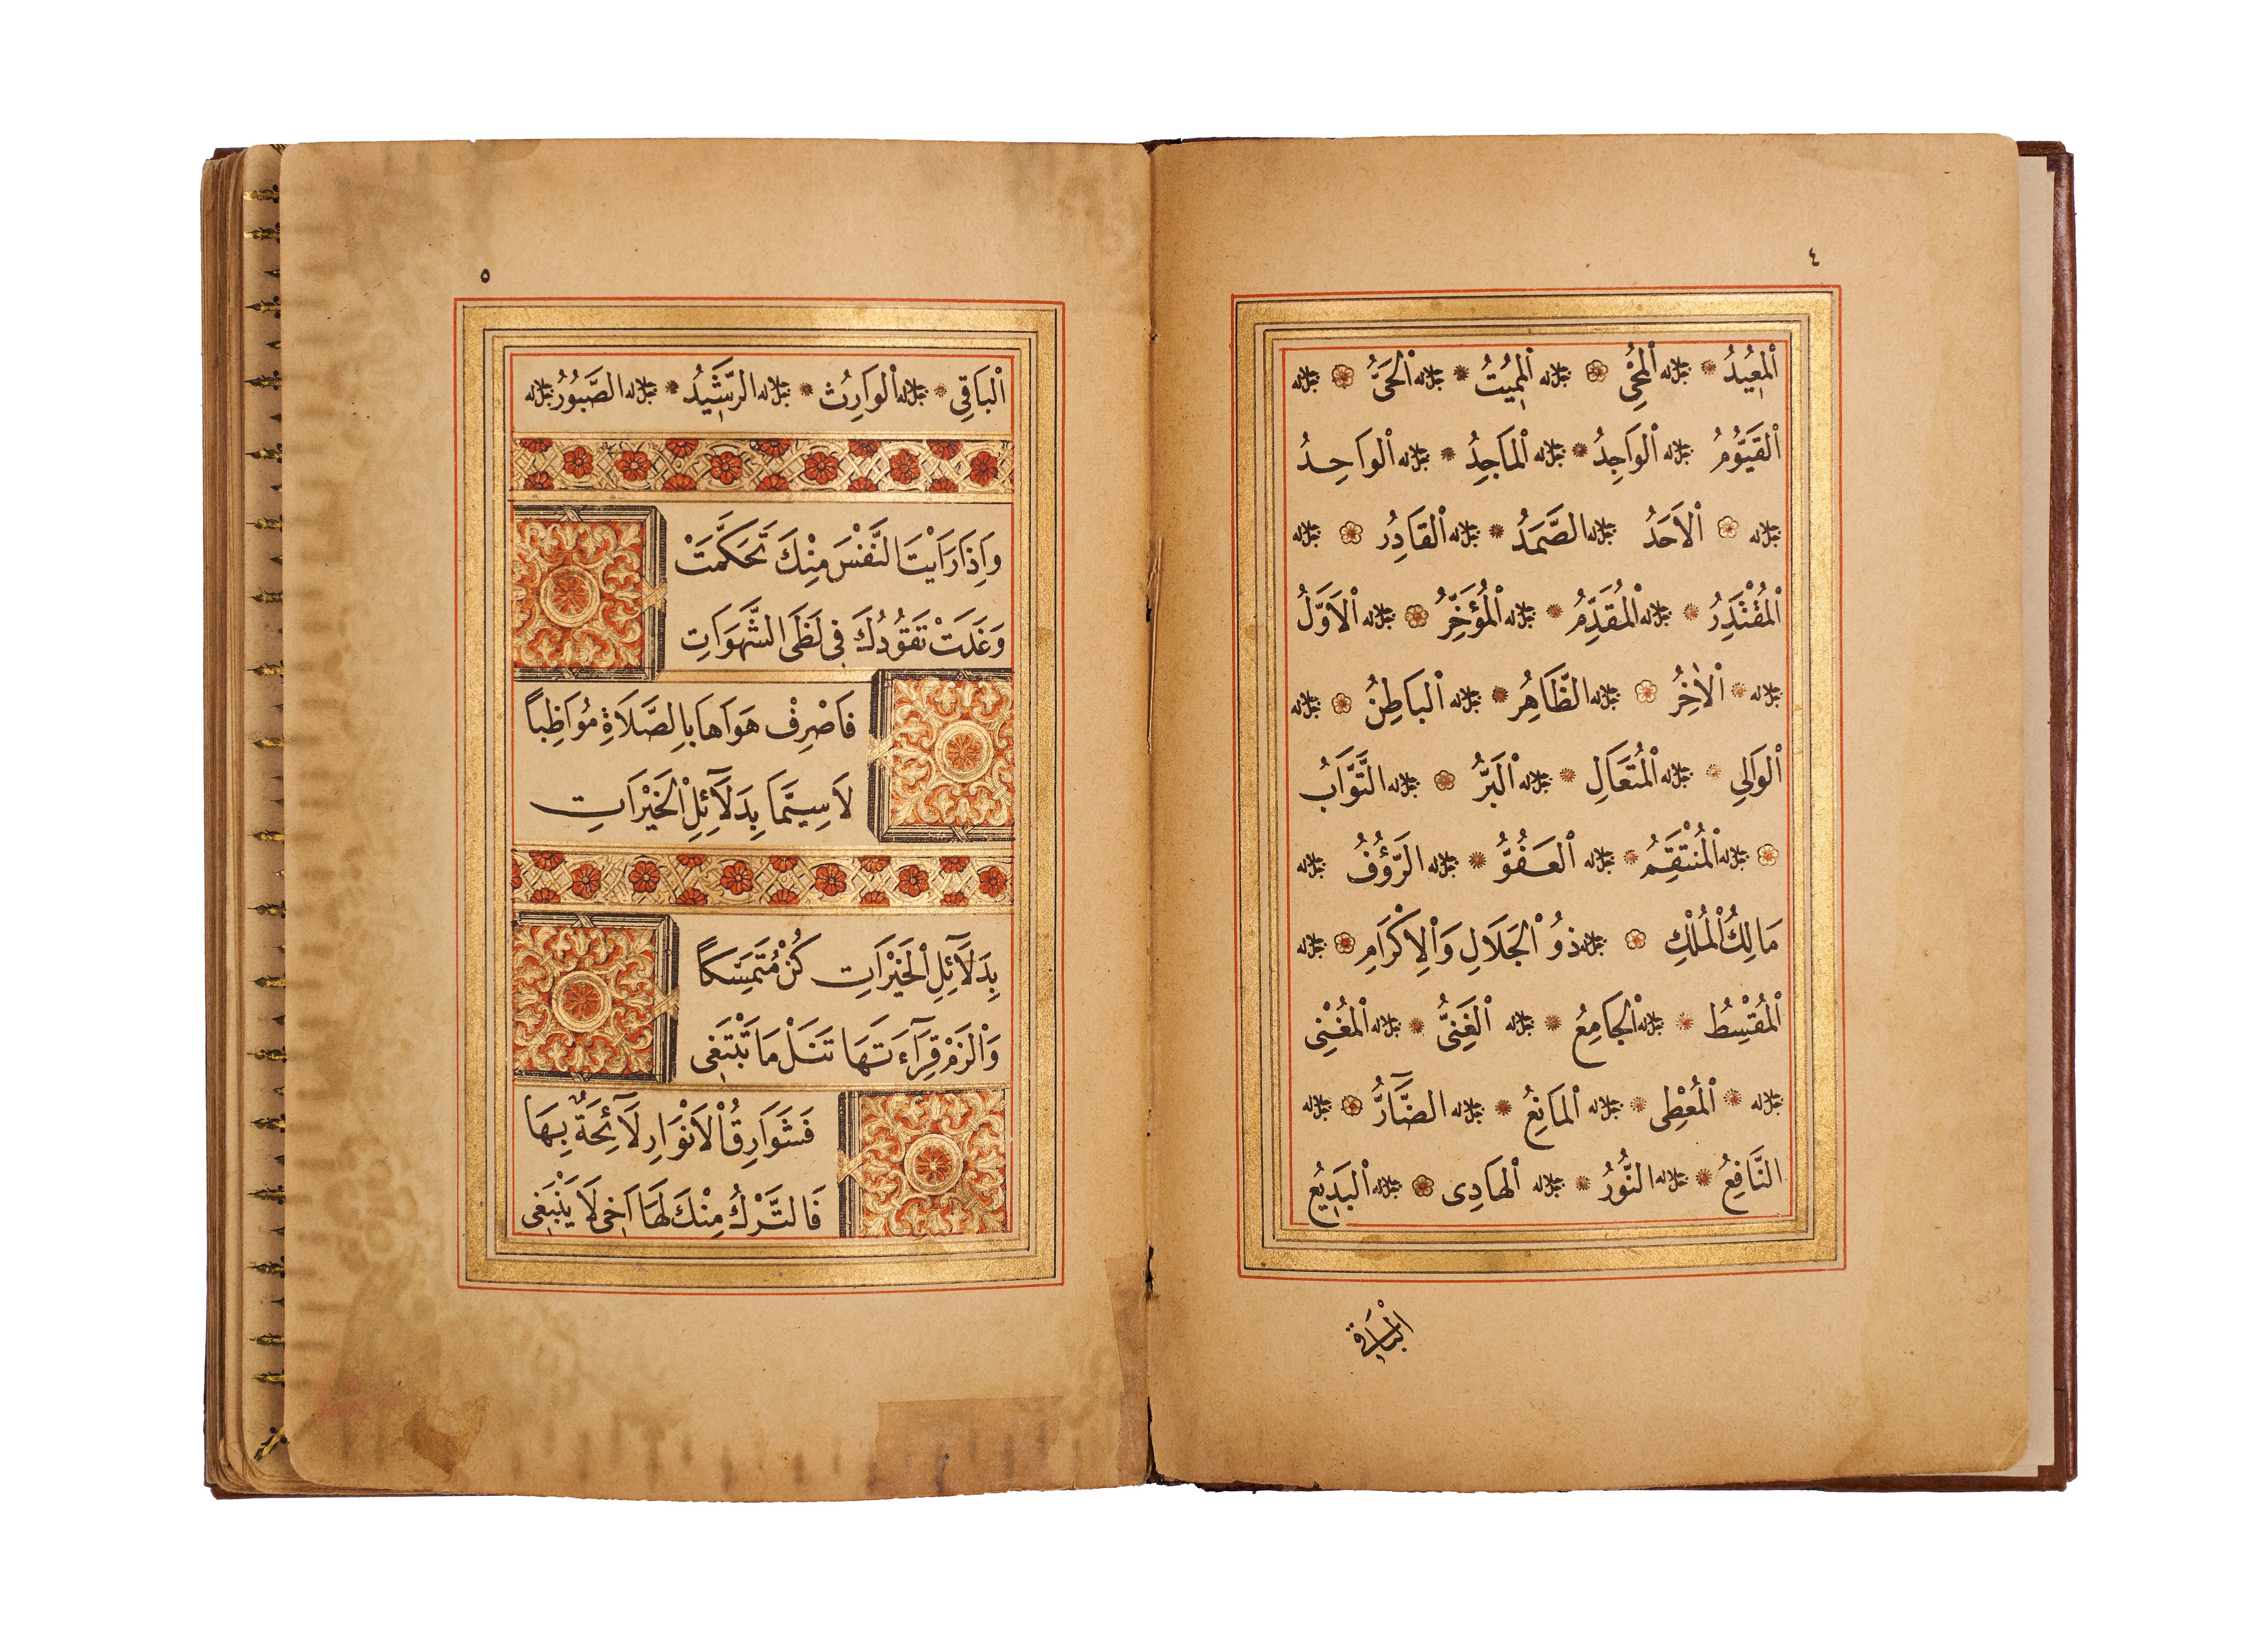 ٤
اَلْمُعِيدُ جل جلاله اَلْمُحْيِي جل جلاله اَلْمُمِيتُ جل جلاله اَلْحَيُّ جل جلاله
اَلْقَيُّومُ جل جلاله اَلْوَاجِدُ جل جلاله اَلْمَاجِدُ جل جلاله اَلْوَاحِدُ
جل جلاله اَلْاَحَدُ جل جلاله الصَّمَدُ جل جلاله اَلْقَادِرُ جل جلاله
اَلْمُقْتَدِرُ جل جلاله اَلْمُقَدِّمُ جل جلاله اَلْمُؤَخِّرُ جل جلاله اَلْاَوَّلُ
جل جلاله اَلْاٰخِرُ جل جلاله الظَّاهِرُ جل جلاله اَلْبَاطِنُ جل جلاله
اَلْوَالِي جل جلاله اَلْمُتَعَالِ جل جلاله اَلْبَرُّ جل جلاله التَّوَّابُ
جل جلاله اَلْمُنْتَقِمُ جل جلاله اَلْعَفُوُّ جل جلاله الرَّؤُفُ جل جلاله
مَالِكُ الْمُلْكِ جل جلاله ذُو الْجَلَالِ وَالْاِكْرَامِ جل جلاله
اَلْمُقْسِطُ جل جلاله اَلْجَامِعُ جل جلاله اَلْغَنِيُّ جل جلاله اَلْمُغْنِى
جل جلاله اَلْمُعْطِى جل جلاله اَلْمَانِعُ جل جلاله الضَّآرُّ جل جلاله
النَّافِعُ جل جلاله النُّورُ جل جلاله اَلْهَادِى جل جلاله اَلْبَدِيعُ
اَلْبَاقِي
٥
اَلْبَاقِي جل جلاله اَلْوَارِثُ جل جلاله الرَّشِيدُ جل جلاله الصَّبُورُ جل جلاله
وَاِذَا رَاَيْتَ النَّفْسَ مِنْكَ تَحَكَّمَتْ
وَغَدَتْ تَقُودُكَ فِى لَظَى الشَّهَوَاتِ
فَاصْرِفْ هَوَاهَا بِالصَّلَاةِ مُوَاظِباً
لَا سِيَّمَا بِدَلَآئِلِ الْخَيْرَاتِ
بِدَلَآئِلِ الْخَيْرَاتِ كُنْ مُتَمَسِّكاً
وَالْزَمْ قِرَآءَتَهَا تَنَلْ مَا تَبْتَغِى
فَشَوَارِقُ الْاَنْوَارِ لَآئِحَةٌ بِهَا
فَالتَّرْكُ مِنْكَ لَهَا اَخِى لَا يَنْبَغِى